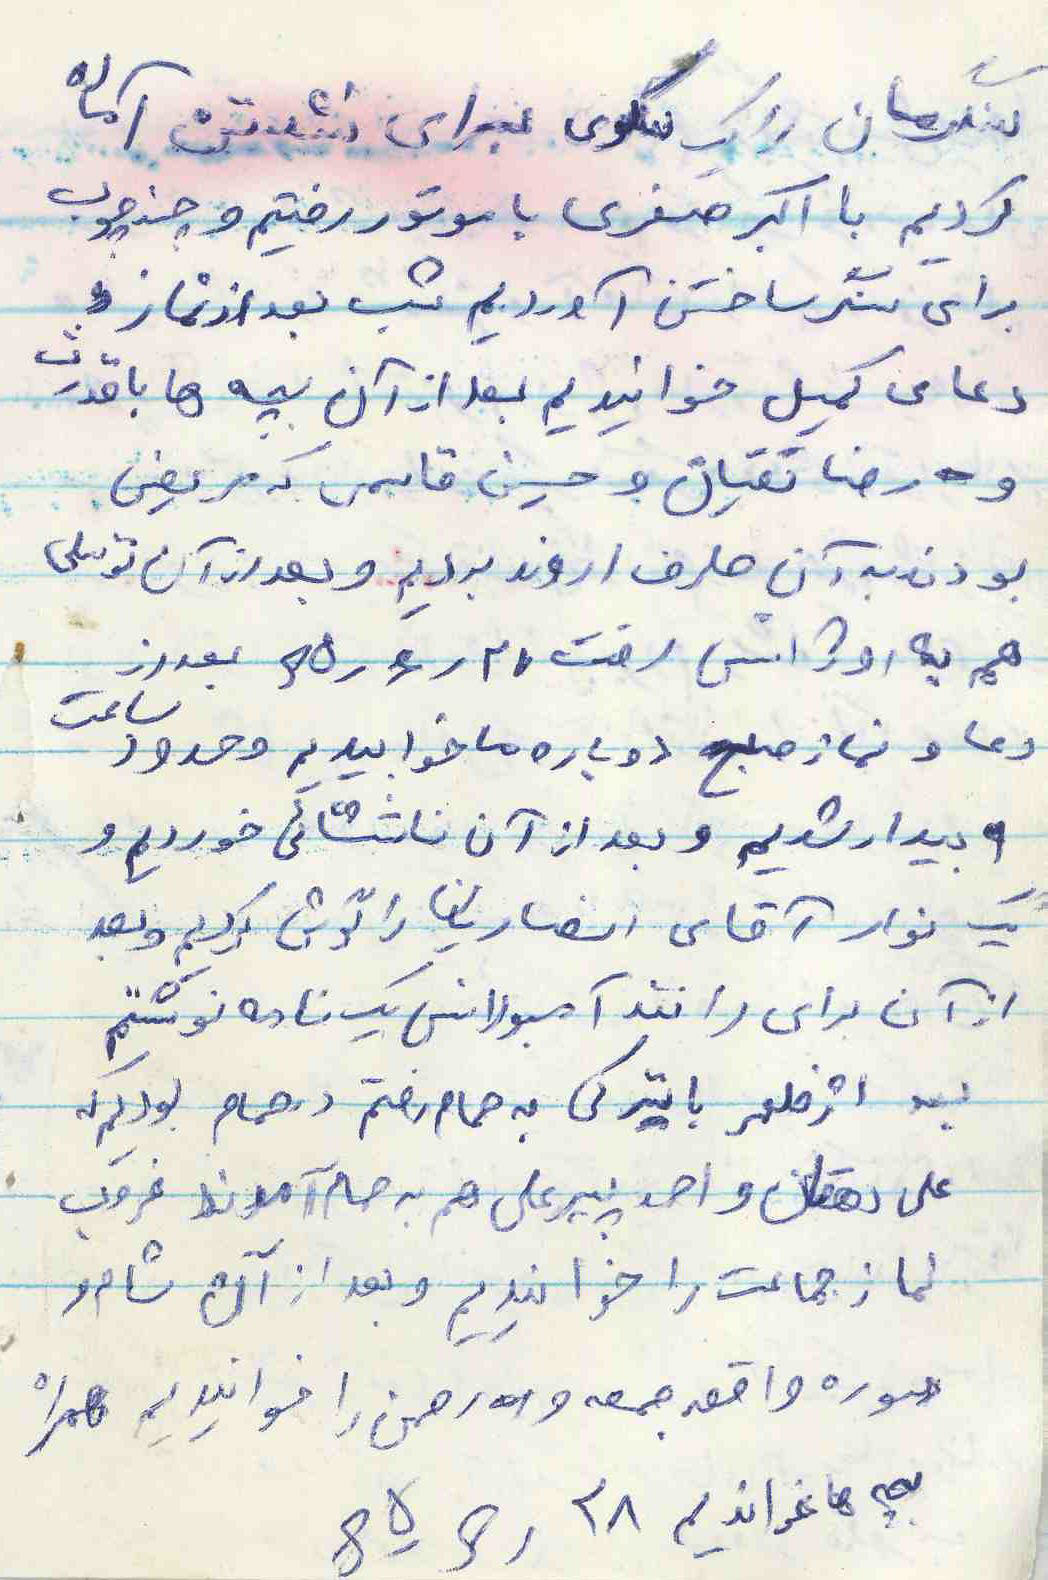 سنگرمان را یک سکوی برای نشستن آماده
کردیم با اکبر صفری با موتور رفتیم و چند چوب
برای سنگر ساختن آوردیم شب بعد از نماز و
دعای کمیل خوانیدیم بعد از آن بچه ها با قدرت
و رضا تقیان و حسین قاسمی که مریض
بودند به آن طرف اروند بردیم و بعد از آن توسلی
هم به اورژانس رفت ۲۷ ر ۶ ر ۶۵ بعد از
دعا و نماز صبح دوباره ما خوابیدیم و حدود ساعت
۹ بیدار شدیم و بعد از آن ناشتائی خوردیم و
یک نوار آقای انصاریان را گوش کردیم و بعد
از آن برای راننده آمبولانس یک نامه نوشتم
بعد از ظهر با ترکی به حمام رفتم در حمام بودیم که
علی دهقان و احمد پیرعلی هم به حمام آمدند غروب
نماز جماعت را خوانیدیم و بعد از آن شام و
سوره واقعه جمعه و الرحمن را خوانیدیم همراه
بچه ها خواندیم ۲۸ ر ۶ ر ۶۵